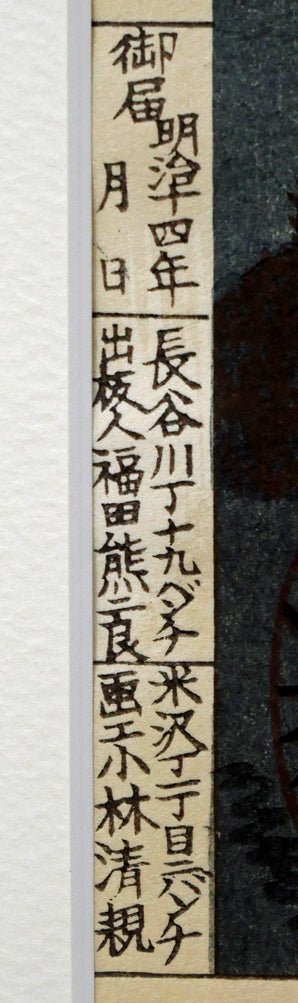 御届
明治十四年
月 日
長谷川丁十九バンチ
出板人 福田熊二良
米沢丁一丁目二バンチ
画工 小林清親